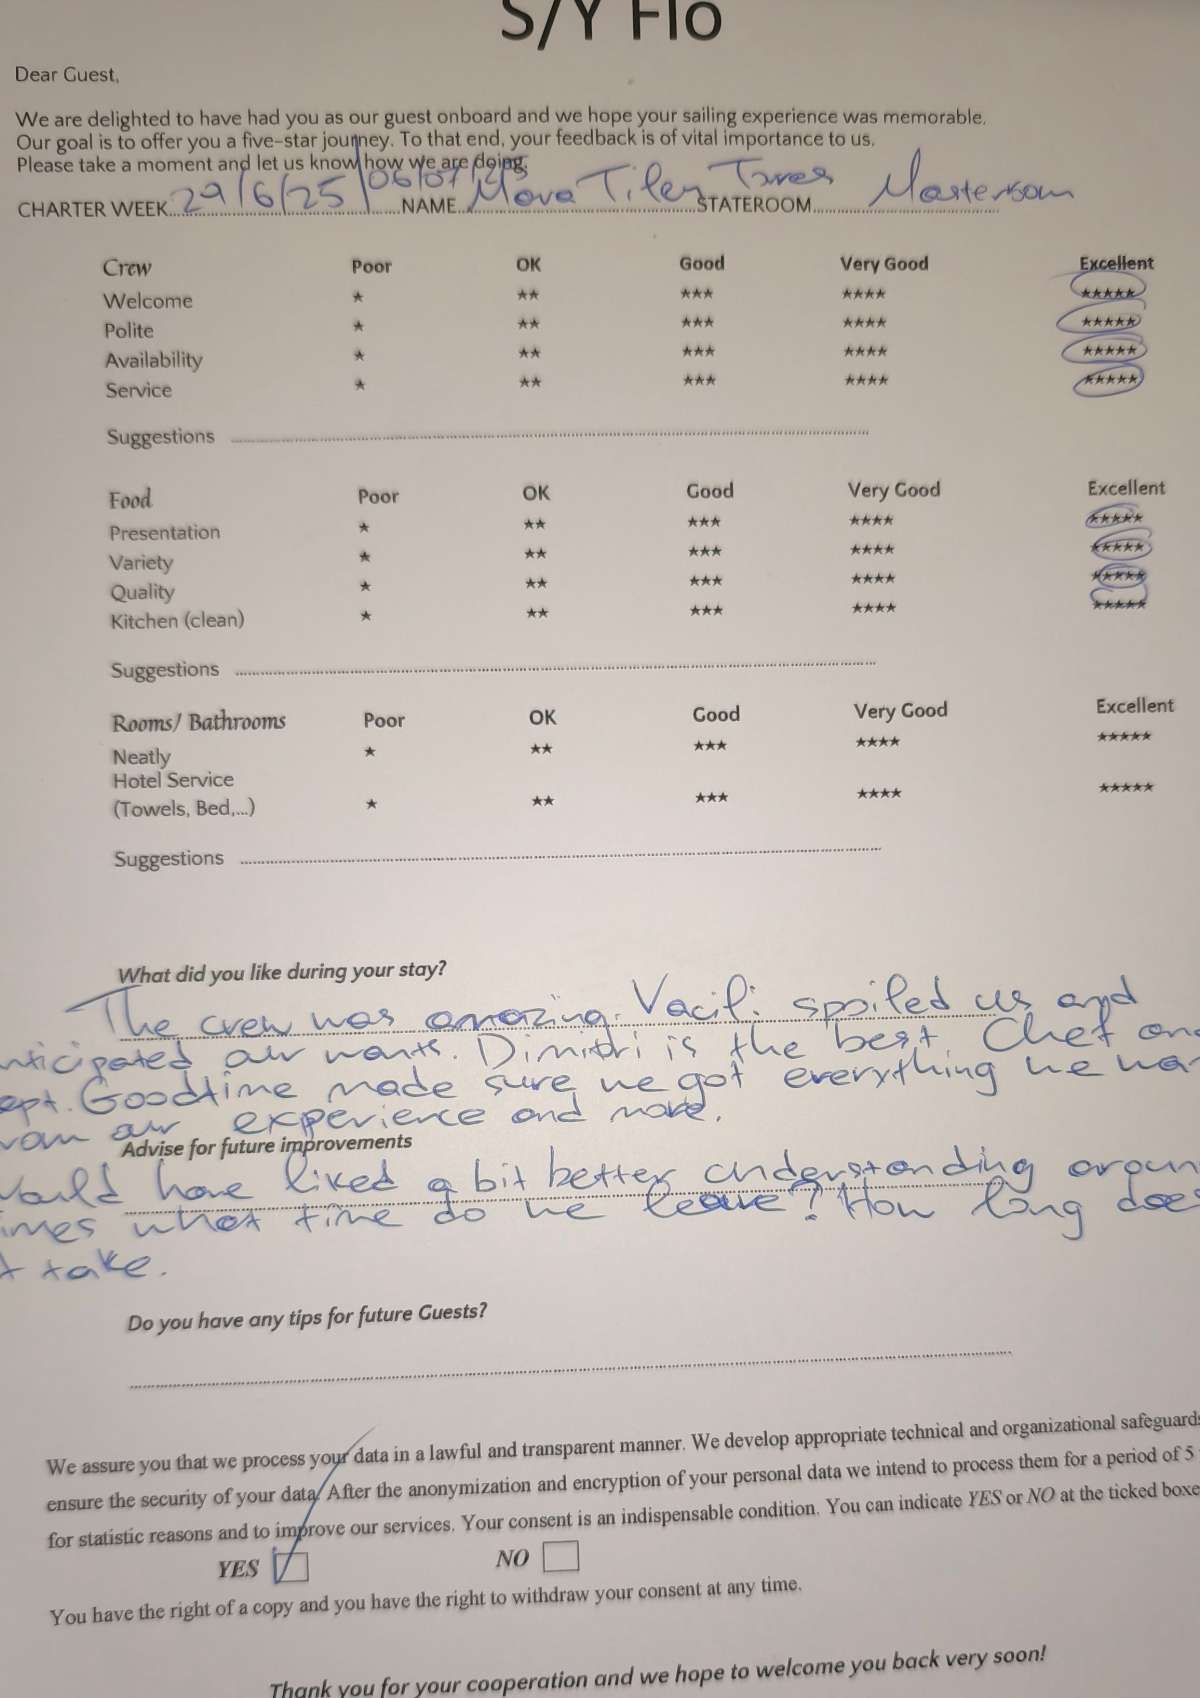 S/Y Flo
Dear Guest,
We are delighted to have had you as our guest onboard and we hope your sailing experience was memorable.
Our goal is to offer you a five-star journey. To that end, your feedback is of vital importance to us.
Please take a moment and let us know how we are doing.
CHARTER WEEK 29/6/25 | 06/07/25 NAME Mova Tiley Tares STATEROOM Masterroom
Crew Poor OK Good Very Good Excellent
Welcome ★ ★★ ★★★ ★★★★ ★★★★★
Polite ★ ★★ ★★★ ★★★★ ★★★★★
Availability ★ ★★ ★★★ ★★★★ ★★★★★
Service ★ ★★ ★★★ ★★★★ ★★★★★
Suggestions
Food Poor OK Good Very Good Excellent
Presentation ★ ★★ ★★★ ★★★★ ★★★★★
Variety ★ ★★ ★★★ ★★★★ ★★★★★
Quality ★ ★★ ★★★ ★★★★ ★★★★★
Kitchen (clean) ★ ★★ ★★★ ★★★★ ★★★★★
Suggestions
Rooms/ Bathrooms Poor OK Good Very Good Excellent
Neatly ★ ★★ ★★★ ★★★★ ★★★★★
Hotel Service
(Towels, Bed,...) ★ ★★ ★★★ ★★★★ ★★★★★
Suggestions
What did you like during your stay?
The crew was amazing. Vacili spoiled us and
nticipated our wants. Dimitri is the best. Chef and
ept. Goodtime made sure we got everything we wan
rom our experience and more.
Advise for future improvements
Would have liked a bit better understanding aroun
imes what time do we leave? How long does
t take.
Do you have any tips for future Guests?
We assure you that we process your data in a lawful and transparent manner. We develop appropriate technical and organizational safeguards
ensure the security of your data. After the anonymization and encryption of your personal data we intend to process them for a period of 5
for statistic reasons and to improve our services. Your consent is an indispensable condition. You can indicate YES or NO at the ticked boxe
YES NO
You have the right of a copy and you have the right to withdraw your consent at any time.
Thank you for your cooperation and we hope to welcome you back very soon!